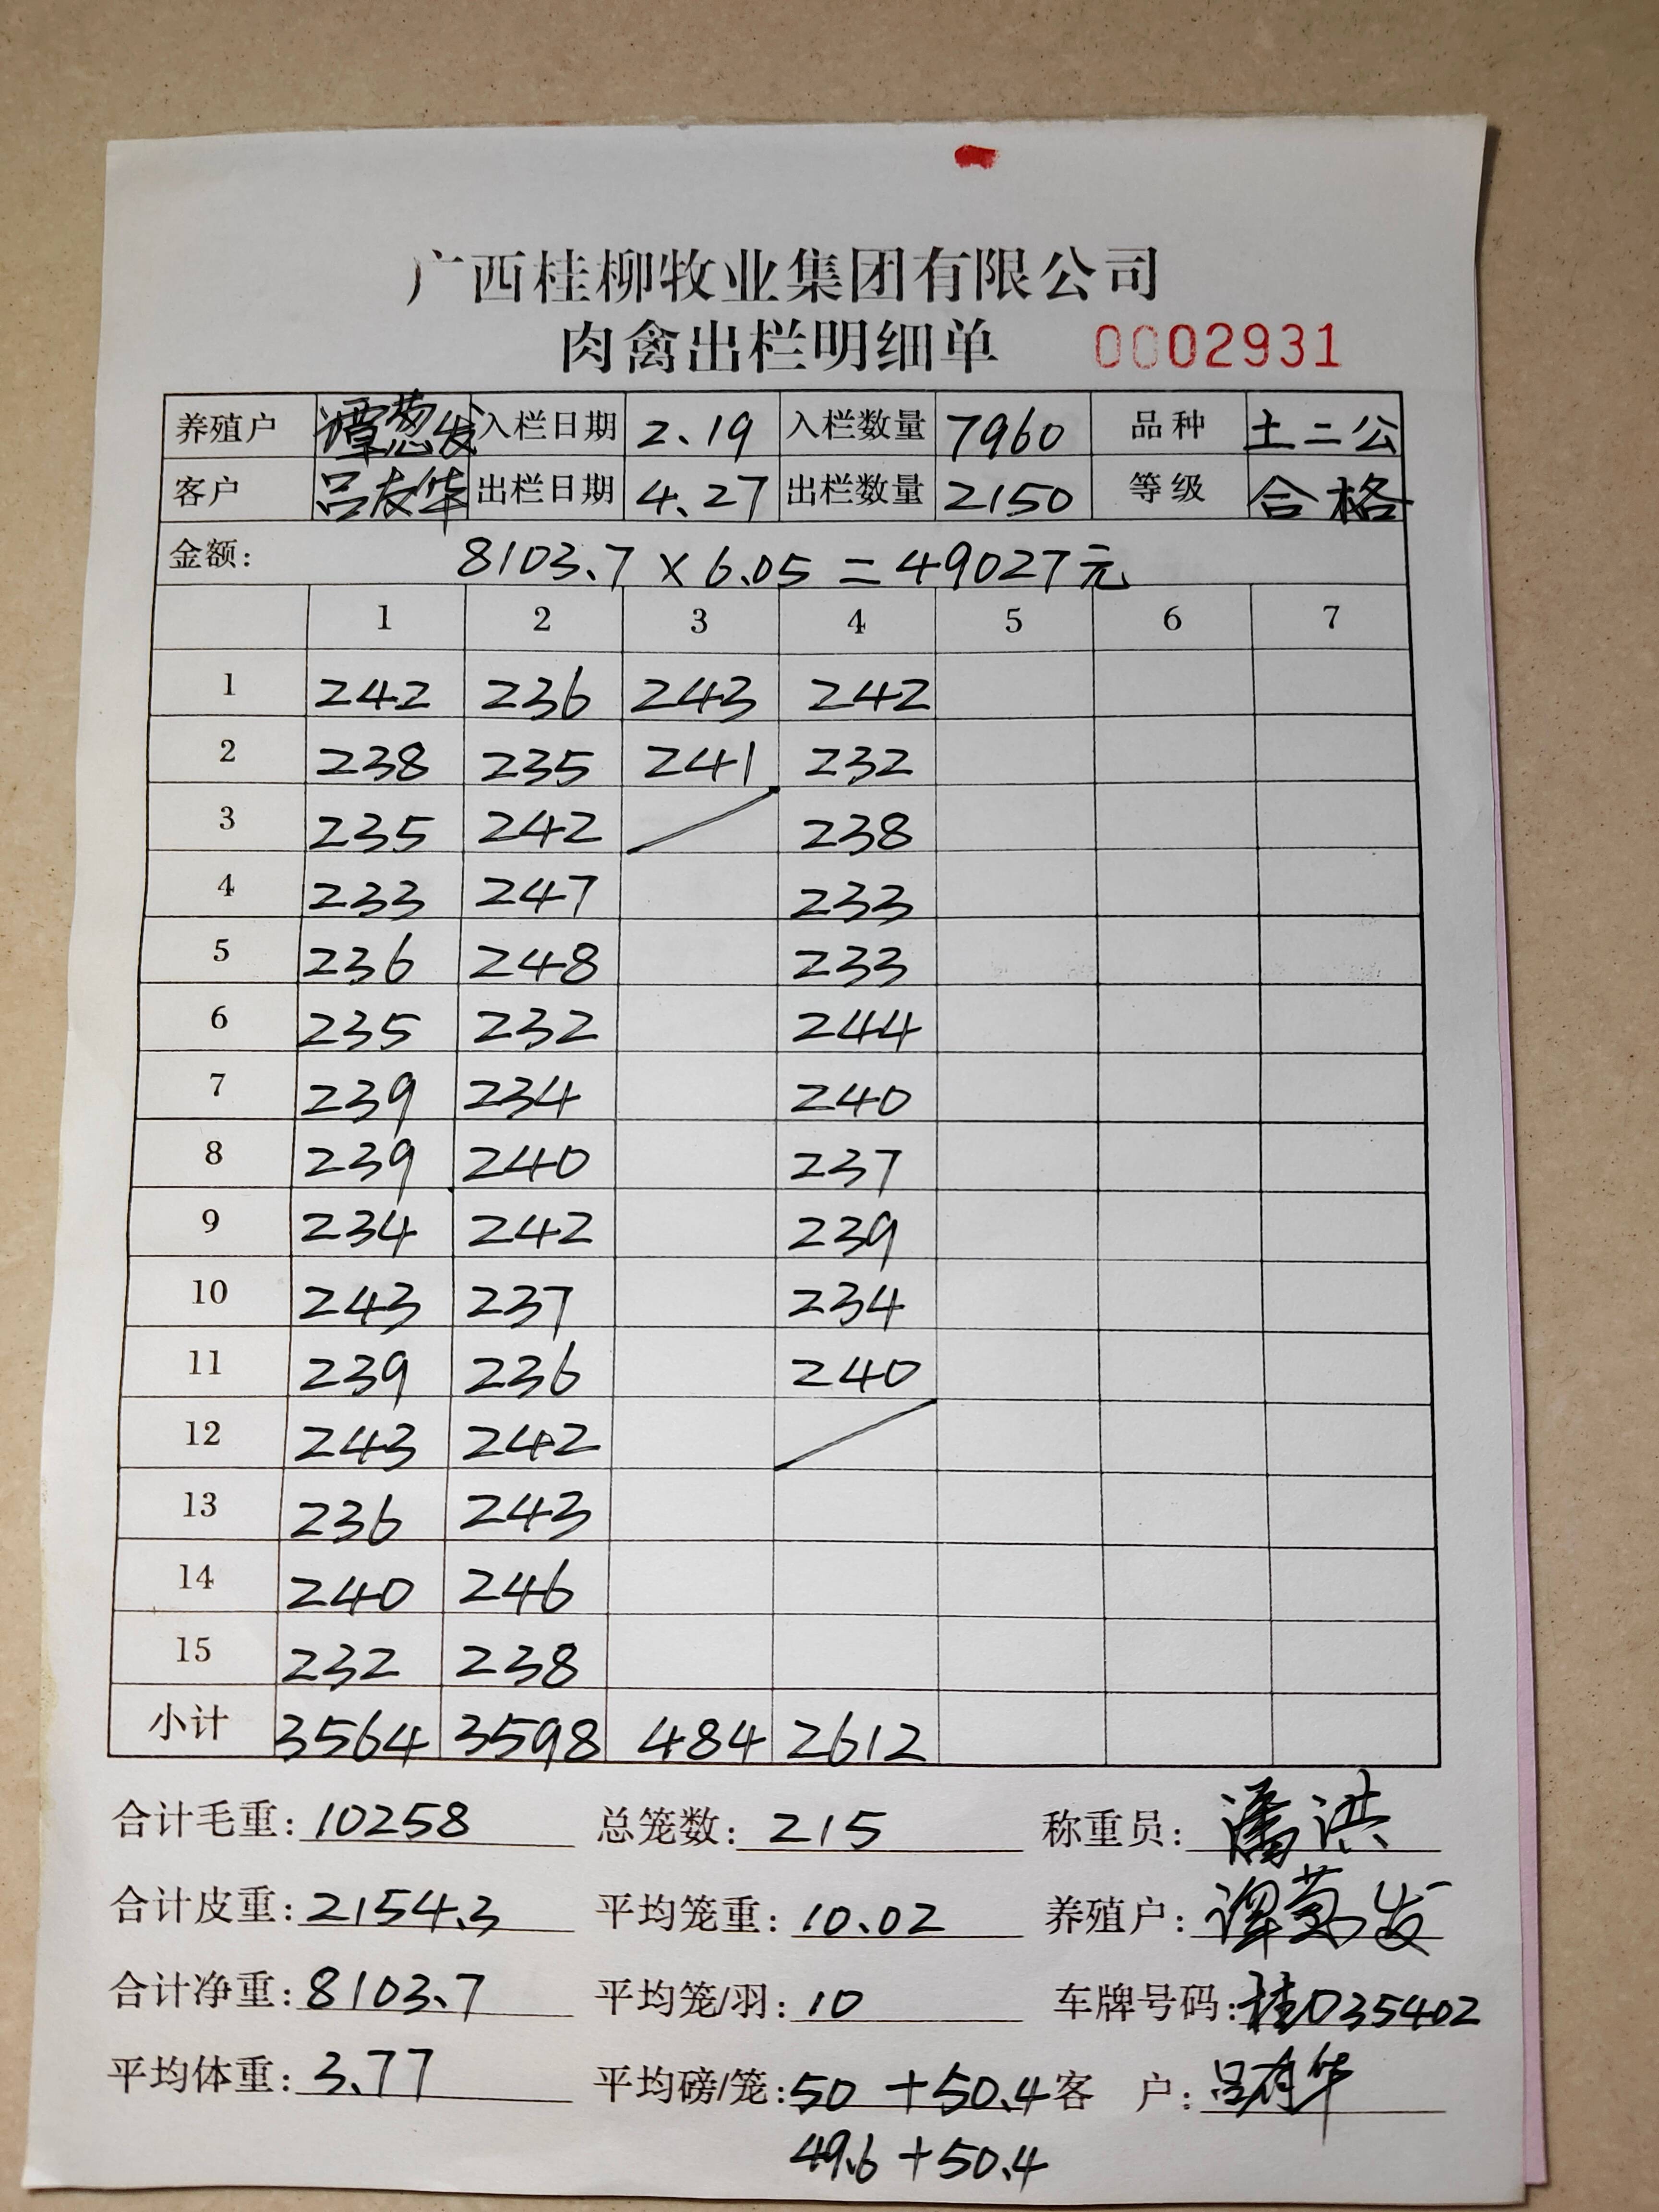 广西桂柳牧业集团有限公司
肉禽出栏明细单 0002931
养殖户 谭葱发 入栏日期 2.19 入栏数量 7960 品种 土二公
客户 吕友华 出栏日期 4.27 出栏数量 2150 等级 合格
金额: 8103.7 × 6.05 = 49027元
1 2 3 4 5 6 7
1 242 236 243 242
2 238 235 241 232
3 235 242 238
4 233 247 233
5 236 248 233
6 235 232 244
7 239 234 240
8 239 240 237
9 234 242 239
10 243 237 234
11 239 236 240
12 243 242
13 236 243
14 240 246
15 232 238
小计 3564 3598 484 2612
合计毛重: 10258 总笼数: 215 称重员: 潘洪
合计皮重: 2154.3 平均笼重: 10.02 养殖户: 谭葱发
合计净重: 8103.7 平均笼/羽: 10 车牌号码: 桂D35402
平均体重: 3.77 平均磅/笼: 50 + 50.4 客户: 吕有华
49.6 + 50.4